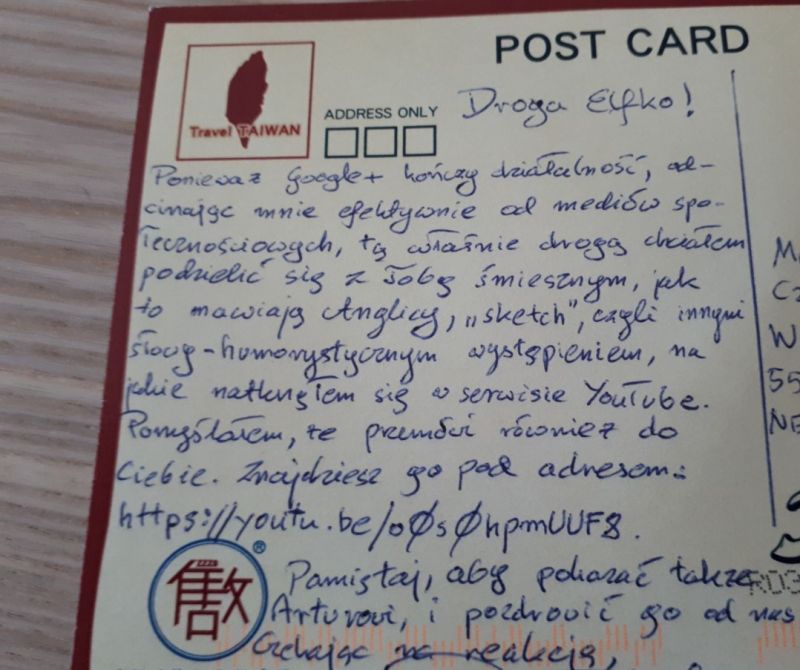 POST CARD
Travel TAIWAN
ADDRESS ONLY
Droga Elfko!
Ponieważ Google+ kończy działalność, od-
cinając mnie efektywnie od mediów spo-
łecznościowych, tą właśnie drogą chciałem
podzielić się z Tobą śmiesznym, jak
to mawiają Anglicy, „sketch”, czyli innymi
słowy - humorystycznym wystąpieniem, na
jakie natknąłem się w serwisie YouTube.
Pomyślałem, że przemówi również do
Ciebie. Znajdziesz go pod adresem:
https://youtu.be/oØsØhpmUUF8.
Pamiętaj, aby pokazać także
Arturowi, i pozdrowić go od nas
Czekając na reakcję,
CZ
W
55
NE